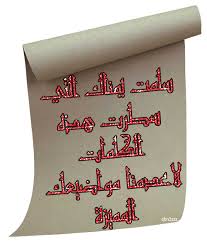 سلمت يمناك التي
سطرت هذه
الكلمات
لا عدمنا مواضيعك
المميزة